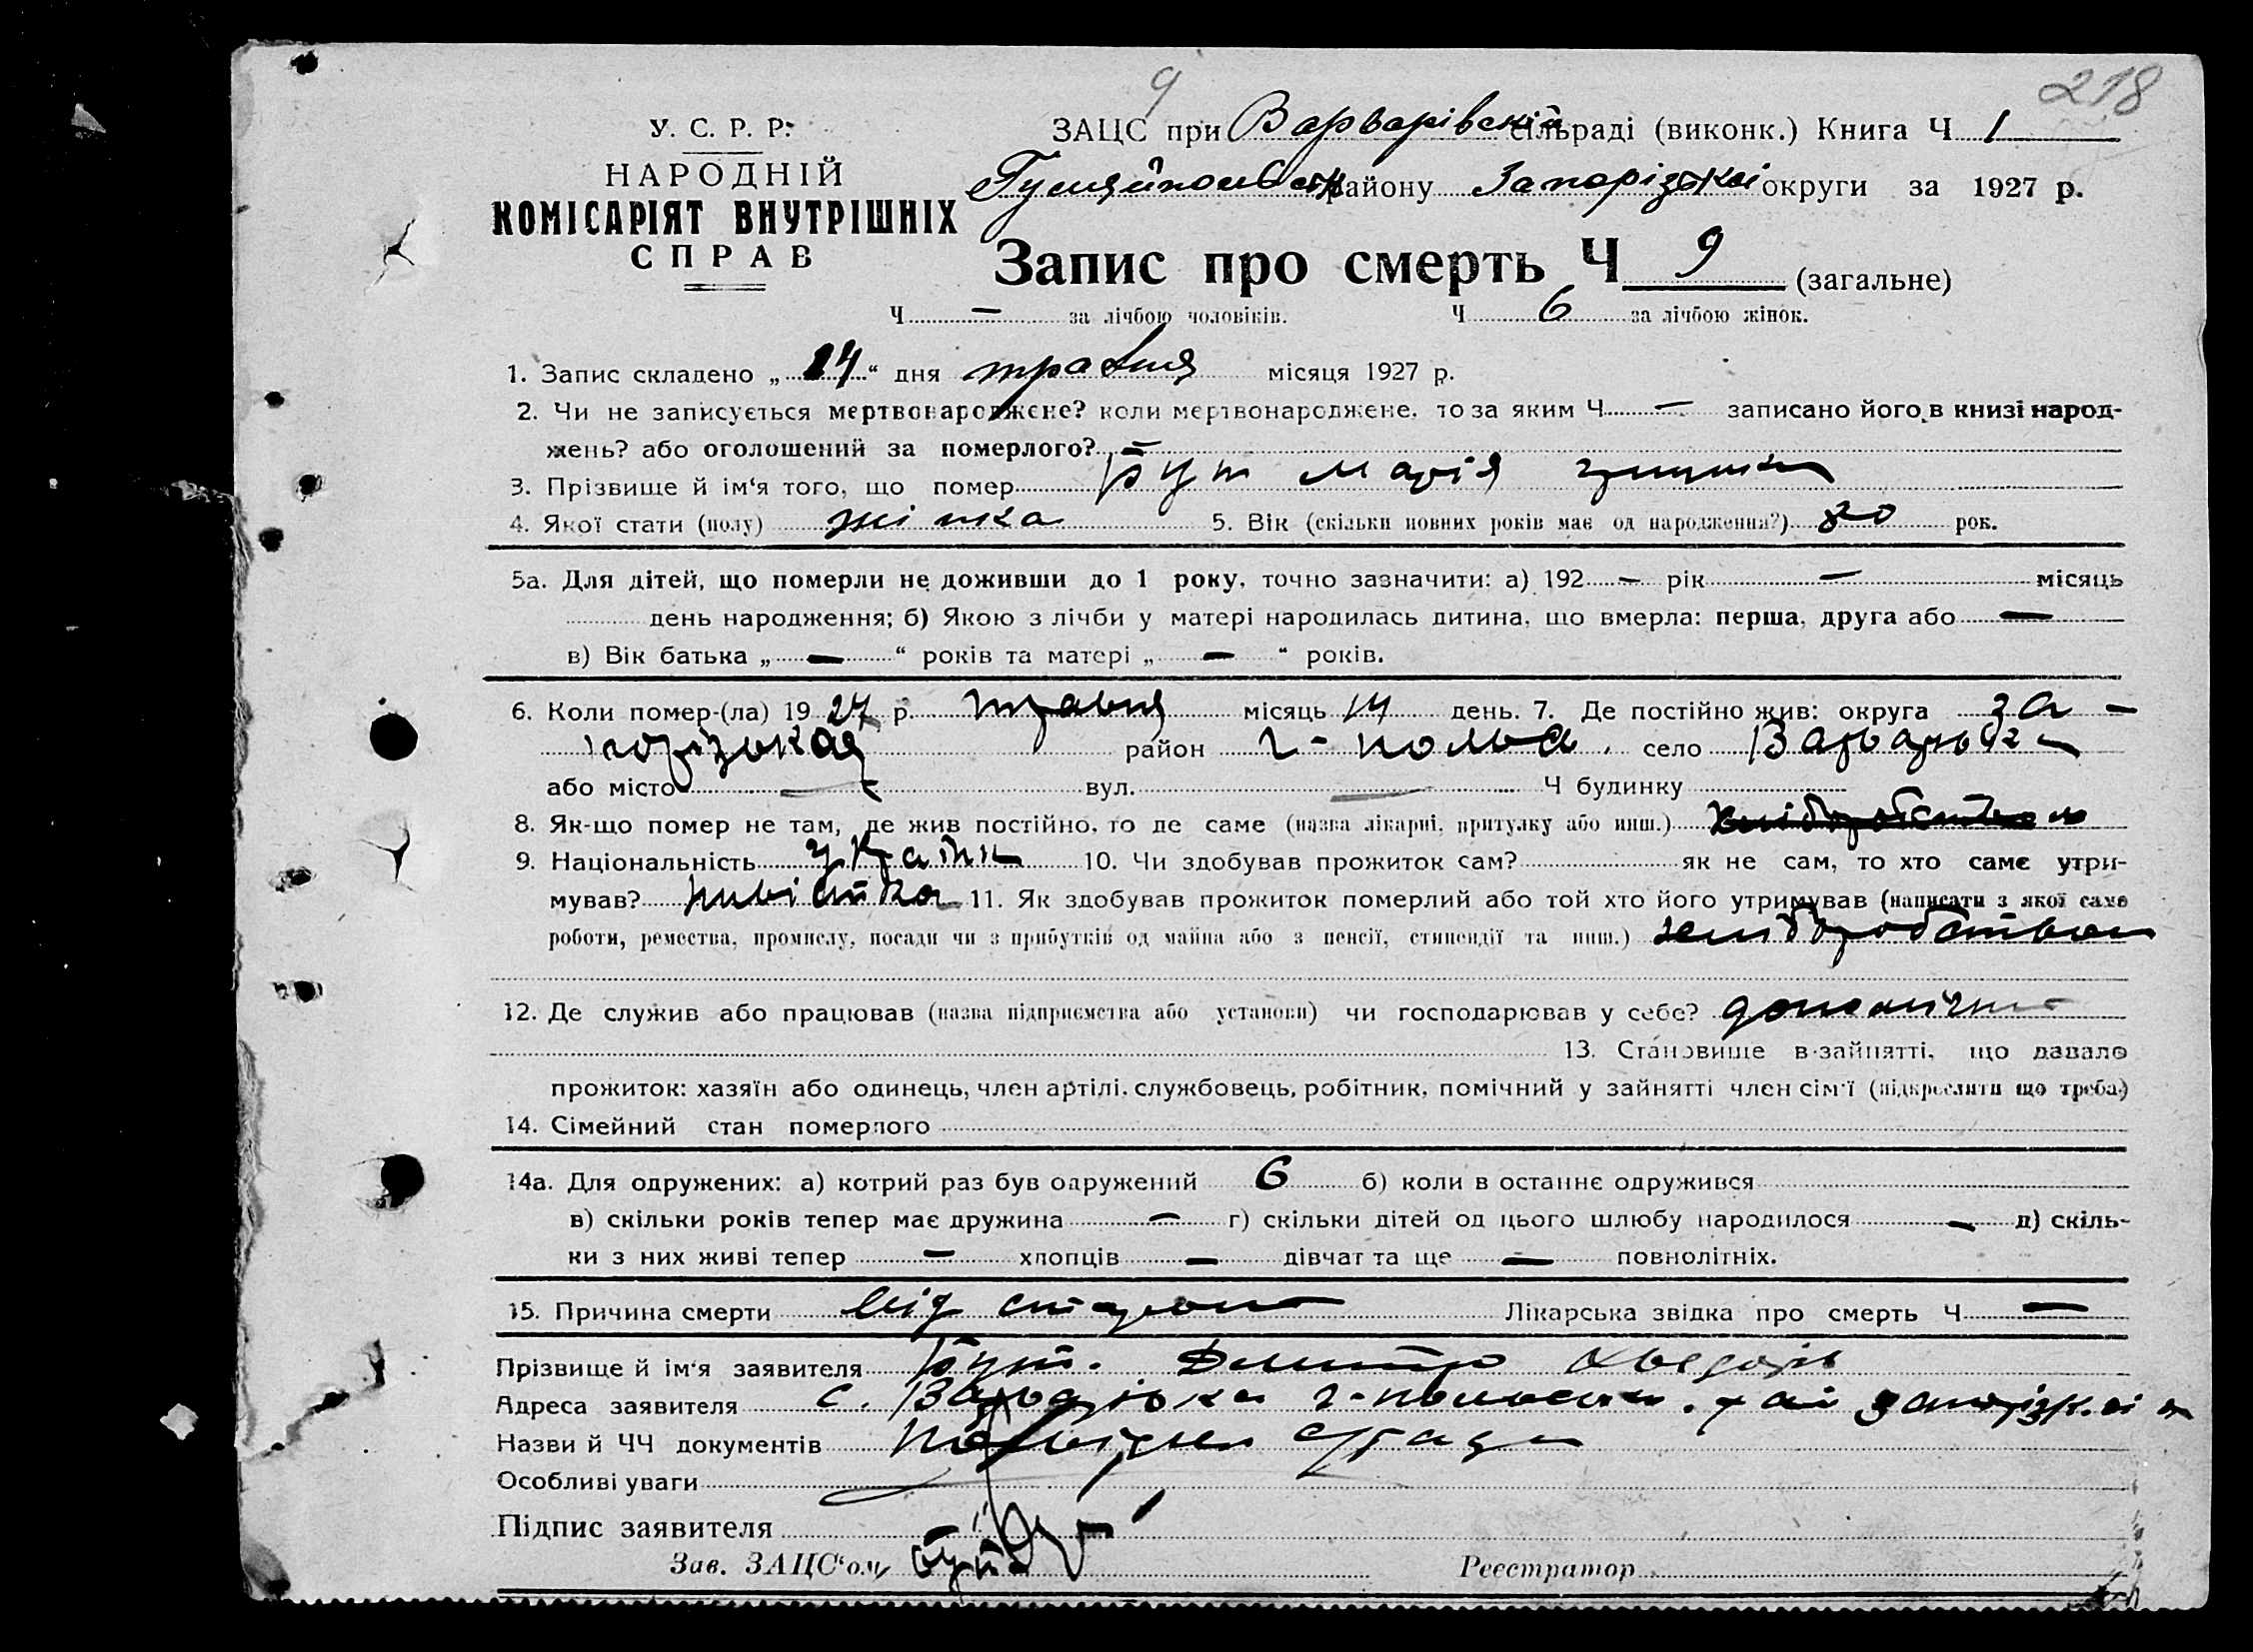 9 218
У. С. Р. Р. ЗАЦС при Варварівській сільраді (виконк.) Книга Ч 1
НАРОДНІЙ Гуляйпольськ району Запорізької округи за 1927 р.
КОМІСАРІЯТ ВНУТРІШНІХ
СПРАВ
Запис про смерть Ч 9 (загальне)
Ч — за лічбою чоловіків. Ч 6 за лічбою жінок.
1. Запис складено „14“ дня травня місяця 1927 р.
2. Чи не записується мертвонароджене? коли мертвонароджене, то за яким Ч — записано його в книзі народ-
жень? або оголошений за померлого? —
3. Прізвище й ім'я того, що помер Бут Марія
4. Якої стати (полу) жінка 5. Вік (скільки повних років має од народження?) 80 рок.
5а. Для дітей, що померли не доживши до 1 року, точно зазначити: а) 192 — рік — місяць
день народження; б) Якою з лічби у матері народилась дитина, що вмерла: перша, друга або —
в) Вік батька „ — “ років та матері „ — “ років.
6. Коли помер-(ла) 1927 р. травня місяць 14 день. 7. Де постійно жив: округа За-
порізькая район Г-польс. село
або місто — вул. — Ч будинку
8. Як-що помер не там, де жив постійно, то де саме (назва лікарні, притулку або инш.)
9. Національність україн 10. Чи здобував прожиток сам? як не сам, то хто саме утри-
мував? нивістка 11. Як здобував прожиток померлий або той хто його утримував (написати з якої саме
роботи, ремества, промислу, посади чи з прибутків од майна або з пенсії, стипендії та инш.) хлібробством
12. Де служив або працював (назва підприємства або установи) чи господарював у себе?
13. Становище в зайнятті, що давало
прожиток: хазяїн або одинець, член артілі, службовець, робітник, помічний у зайнятті член сім'ї (підкреслити що треба)
14. Сімейний стан померлого
14а. Для одружених: а) котрий раз був одружений 6 б) коли в останнє одружився
в) скільки років тепер має дружина — г) скільки дітей од цього шлюбу народилося — д) скіль-
ки з них живі тепер — хлопців — дівчат та ще — повнолітніх.
15. Причина смерти від старости Лікарська звідка про смерть Ч —
Прізвище й ім'я заявителя Бут. Дмитро
Адреса заявителя с. Варварівка
Назви й ЧЧ документів
Особливі уваги —
Підпис заявителя
Зав. ЗАЦС'ом Реєстратор